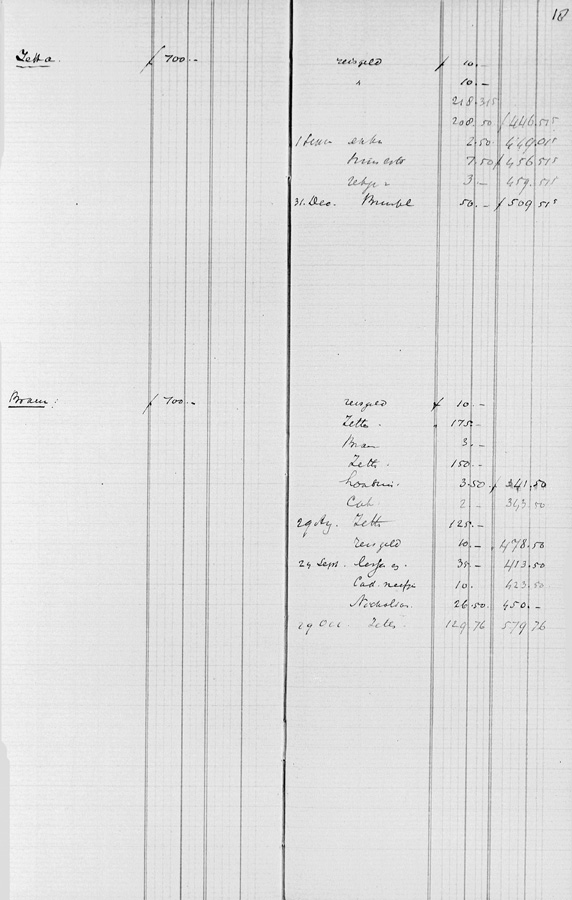 18
Zetta. ƒ 700.- reisgeld ƒ 10.-
" 10.-
218.315
208.50 ƒ 446.515
2.50 449.015
7.50 ƒ 456.515
3.- 459.515
31. Dec. 50.- ƒ 509.515
Bram: ƒ 700.- reisgeld ƒ 10.-
Zetta. 175.-
Bram 3.-
Zetta. 150.-
3.50 ƒ 341.50
Cab 2.- 343.50
29 Aug. Zetta 125.-
reisgeld 10.- 478.50
24 Sept. 35.- 413.50
Cad. 10. 423.50
Nicholson. 26.50. 450.-
29 Oct. Zetta. 129.76 579.76